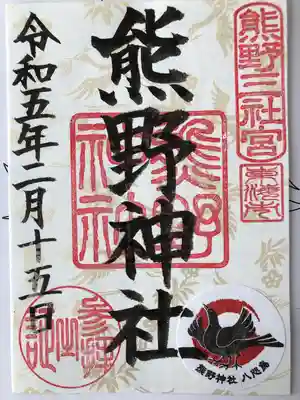 熊野三社宮
熊野神社
熊野
神社
令和五年二月十五日
熊野神社 八咫烏